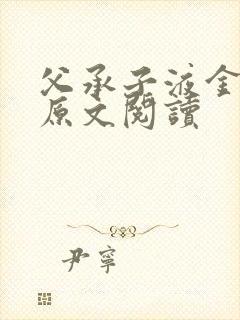 父承子液金
原文閱讀
尹寧